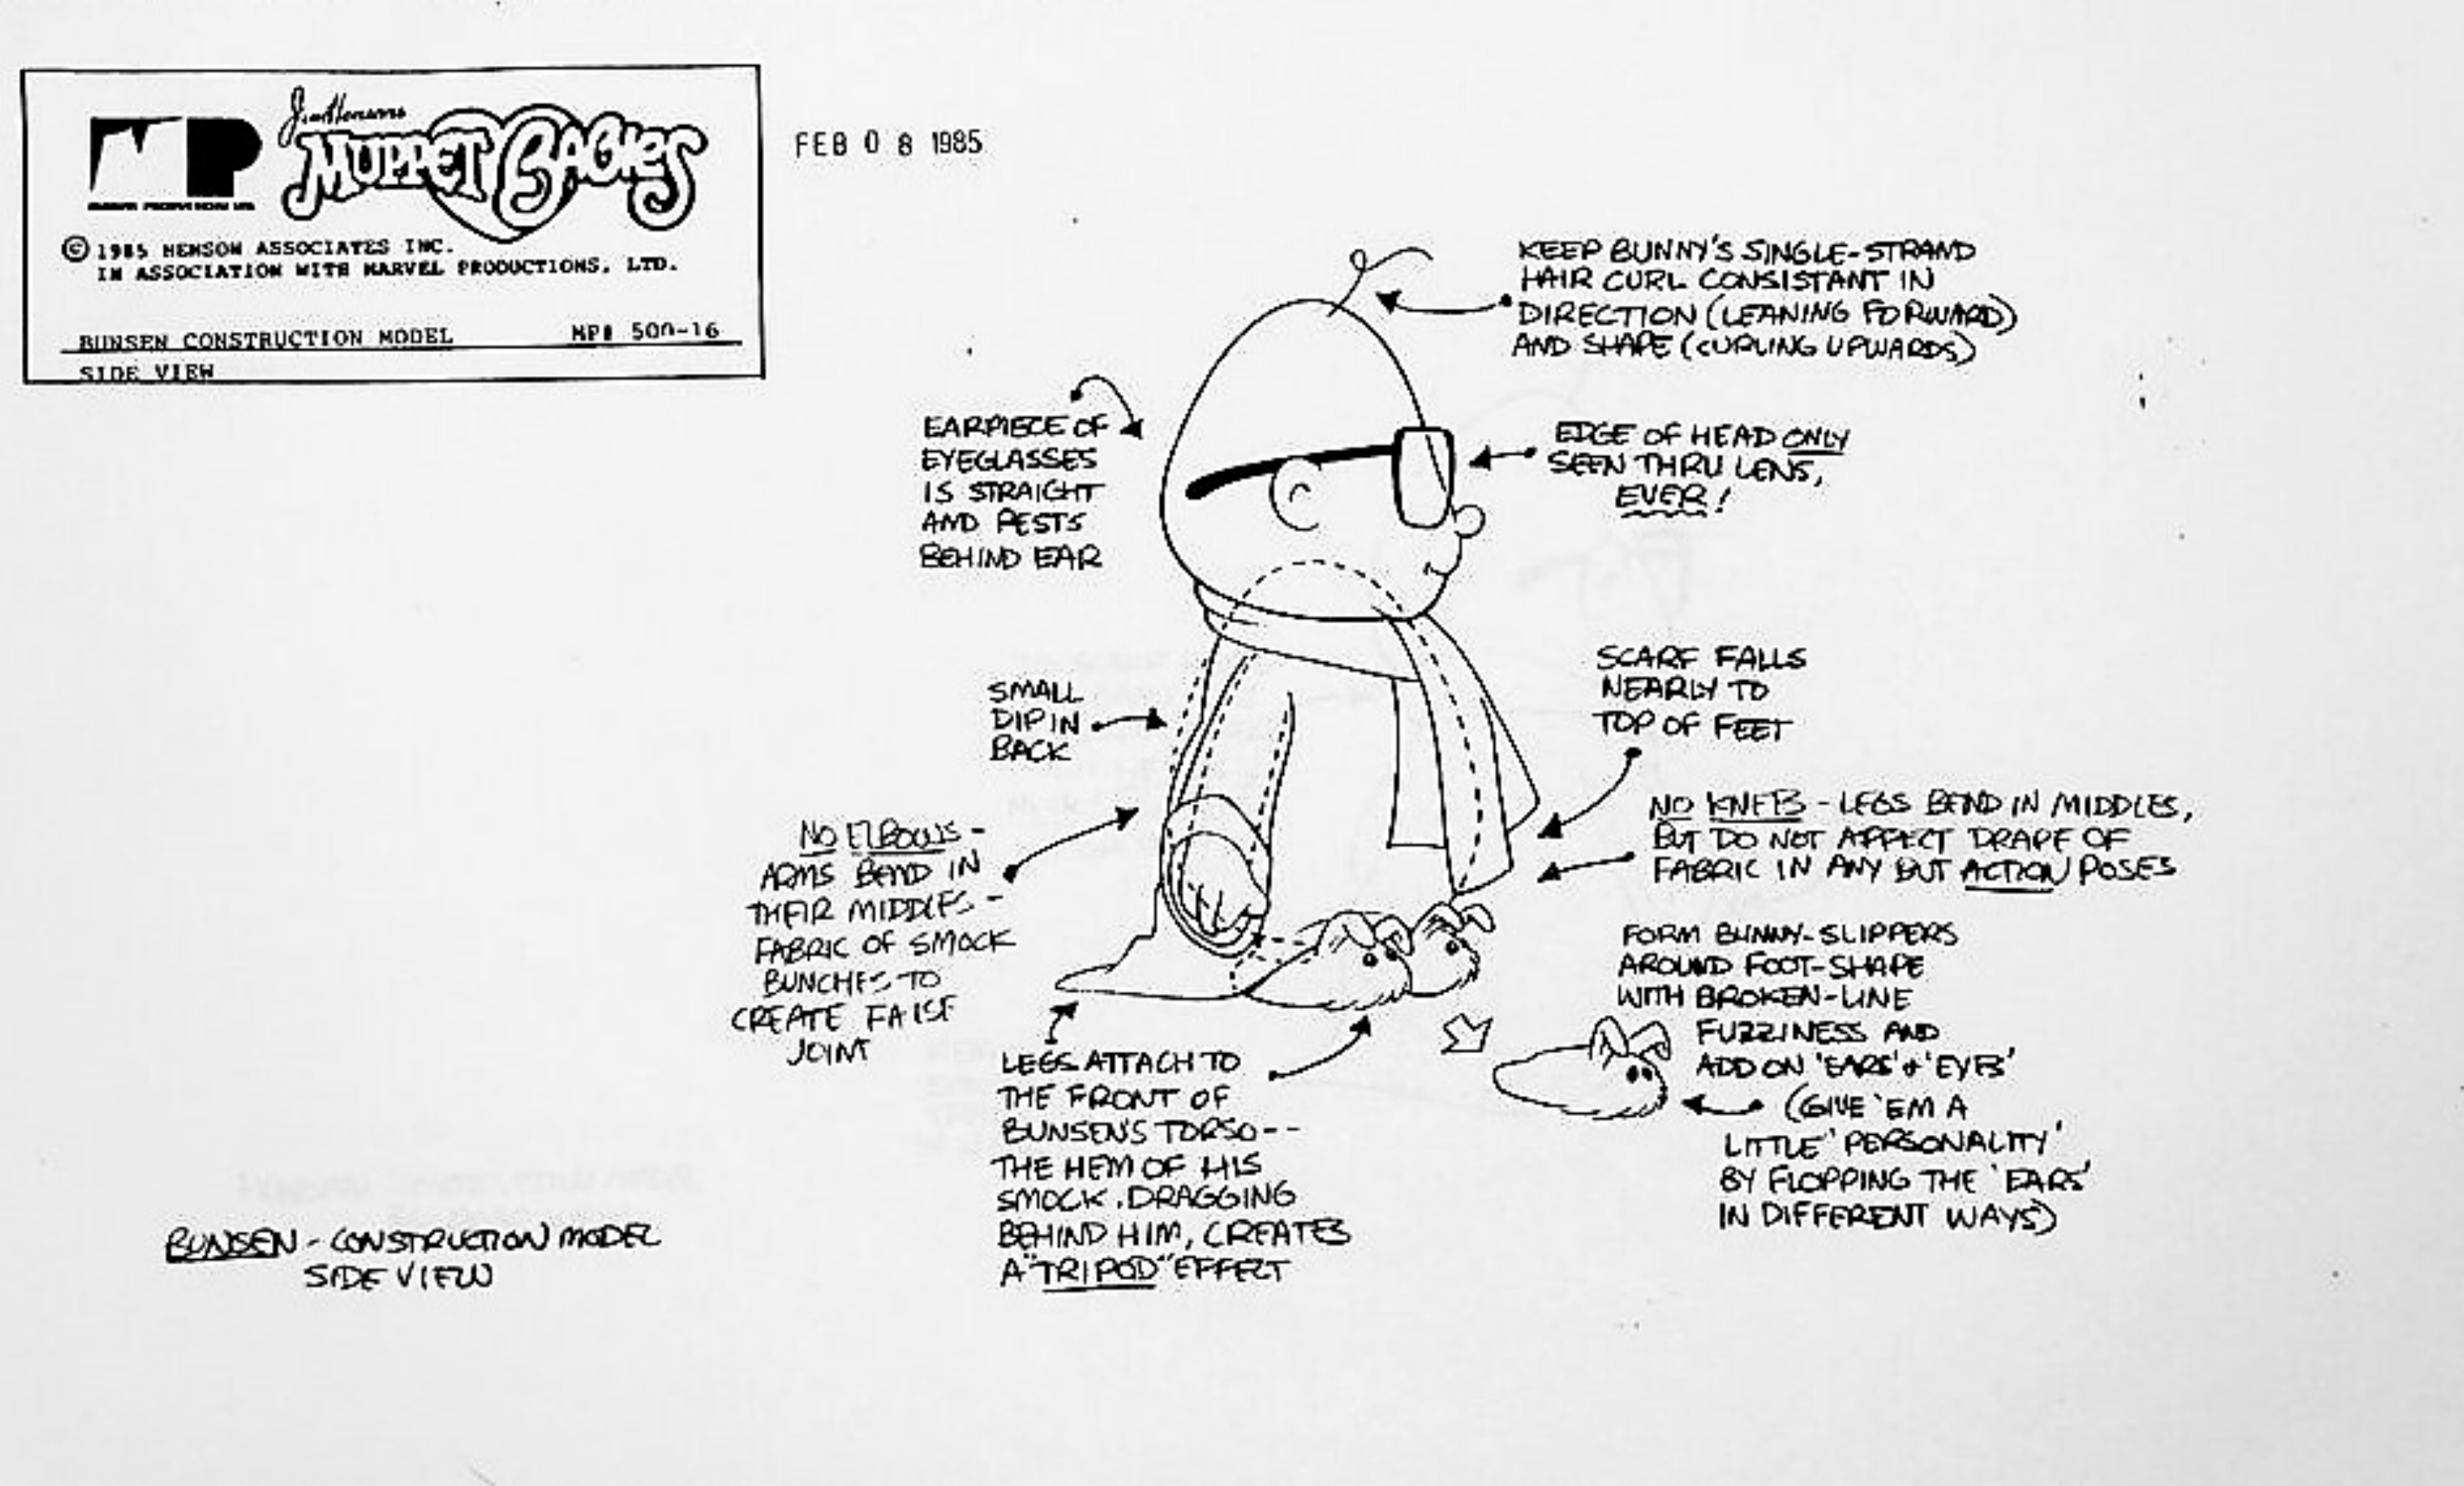 Jim Henson's
MUPPET BABIES
MP
© 1985 HENSON ASSOCIATES INC.
IN ASSOCIATION WITH MARVEL PRODUCTIONS, LTD.
BUNSEN CONSTRUCTION MODEL MP# 500-16
SIDE VIEW
FEB 08 1985
KEEP BUNNY'S SINGLE-STRAND
HAIR CURL CONSISTANT IN
DIRECTION (LEANING FORWARD)
AND SHAPE (CURLING UPWARDS)
EARPIECE OF
EYEGLASSES
IS STRAIGHT
AND RESTS
BEHIND EAR
EDGE OF HEAD ONLY
SEEN THRU LENS,
EVER!
SMALL
DIP IN
BACK
SCARF FALLS
NEARLY TO
TOP OF FEET
NO ELBOWS -
ARMS BEND IN
THEIR MIDDLES -
FABRIC OF SMOCK
BUNCHES TO
CREATE FALSE
JOINT
NO KNEES - LEGS BEND IN MIDDLES,
BUT DO NOT AFFECT DRAPE OF
FABRIC IN ANY BUT ACTION POSES
FORM BUNNY-SLIPPERS
AROUND FOOT-SHAPE
WITH BROKEN-LINE
FUZZINESS AND
ADD ON 'EARS' & 'EYES'
(GIVE 'EM A
LITTLE 'PERSONALITY'
BY FLOPPING THE 'EARS'
IN DIFFERENT WAYS)
LEGS ATTACH TO
THE FRONT OF
BUNSEN'S TORSO--
THE HEM OF HIS
SMOCK, DRAGGING
BEHIND HIM, CREATES
A "TRIPOD" EFFECT
BUNSEN - CONSTRUCTION MODEL
SIDE VIEW